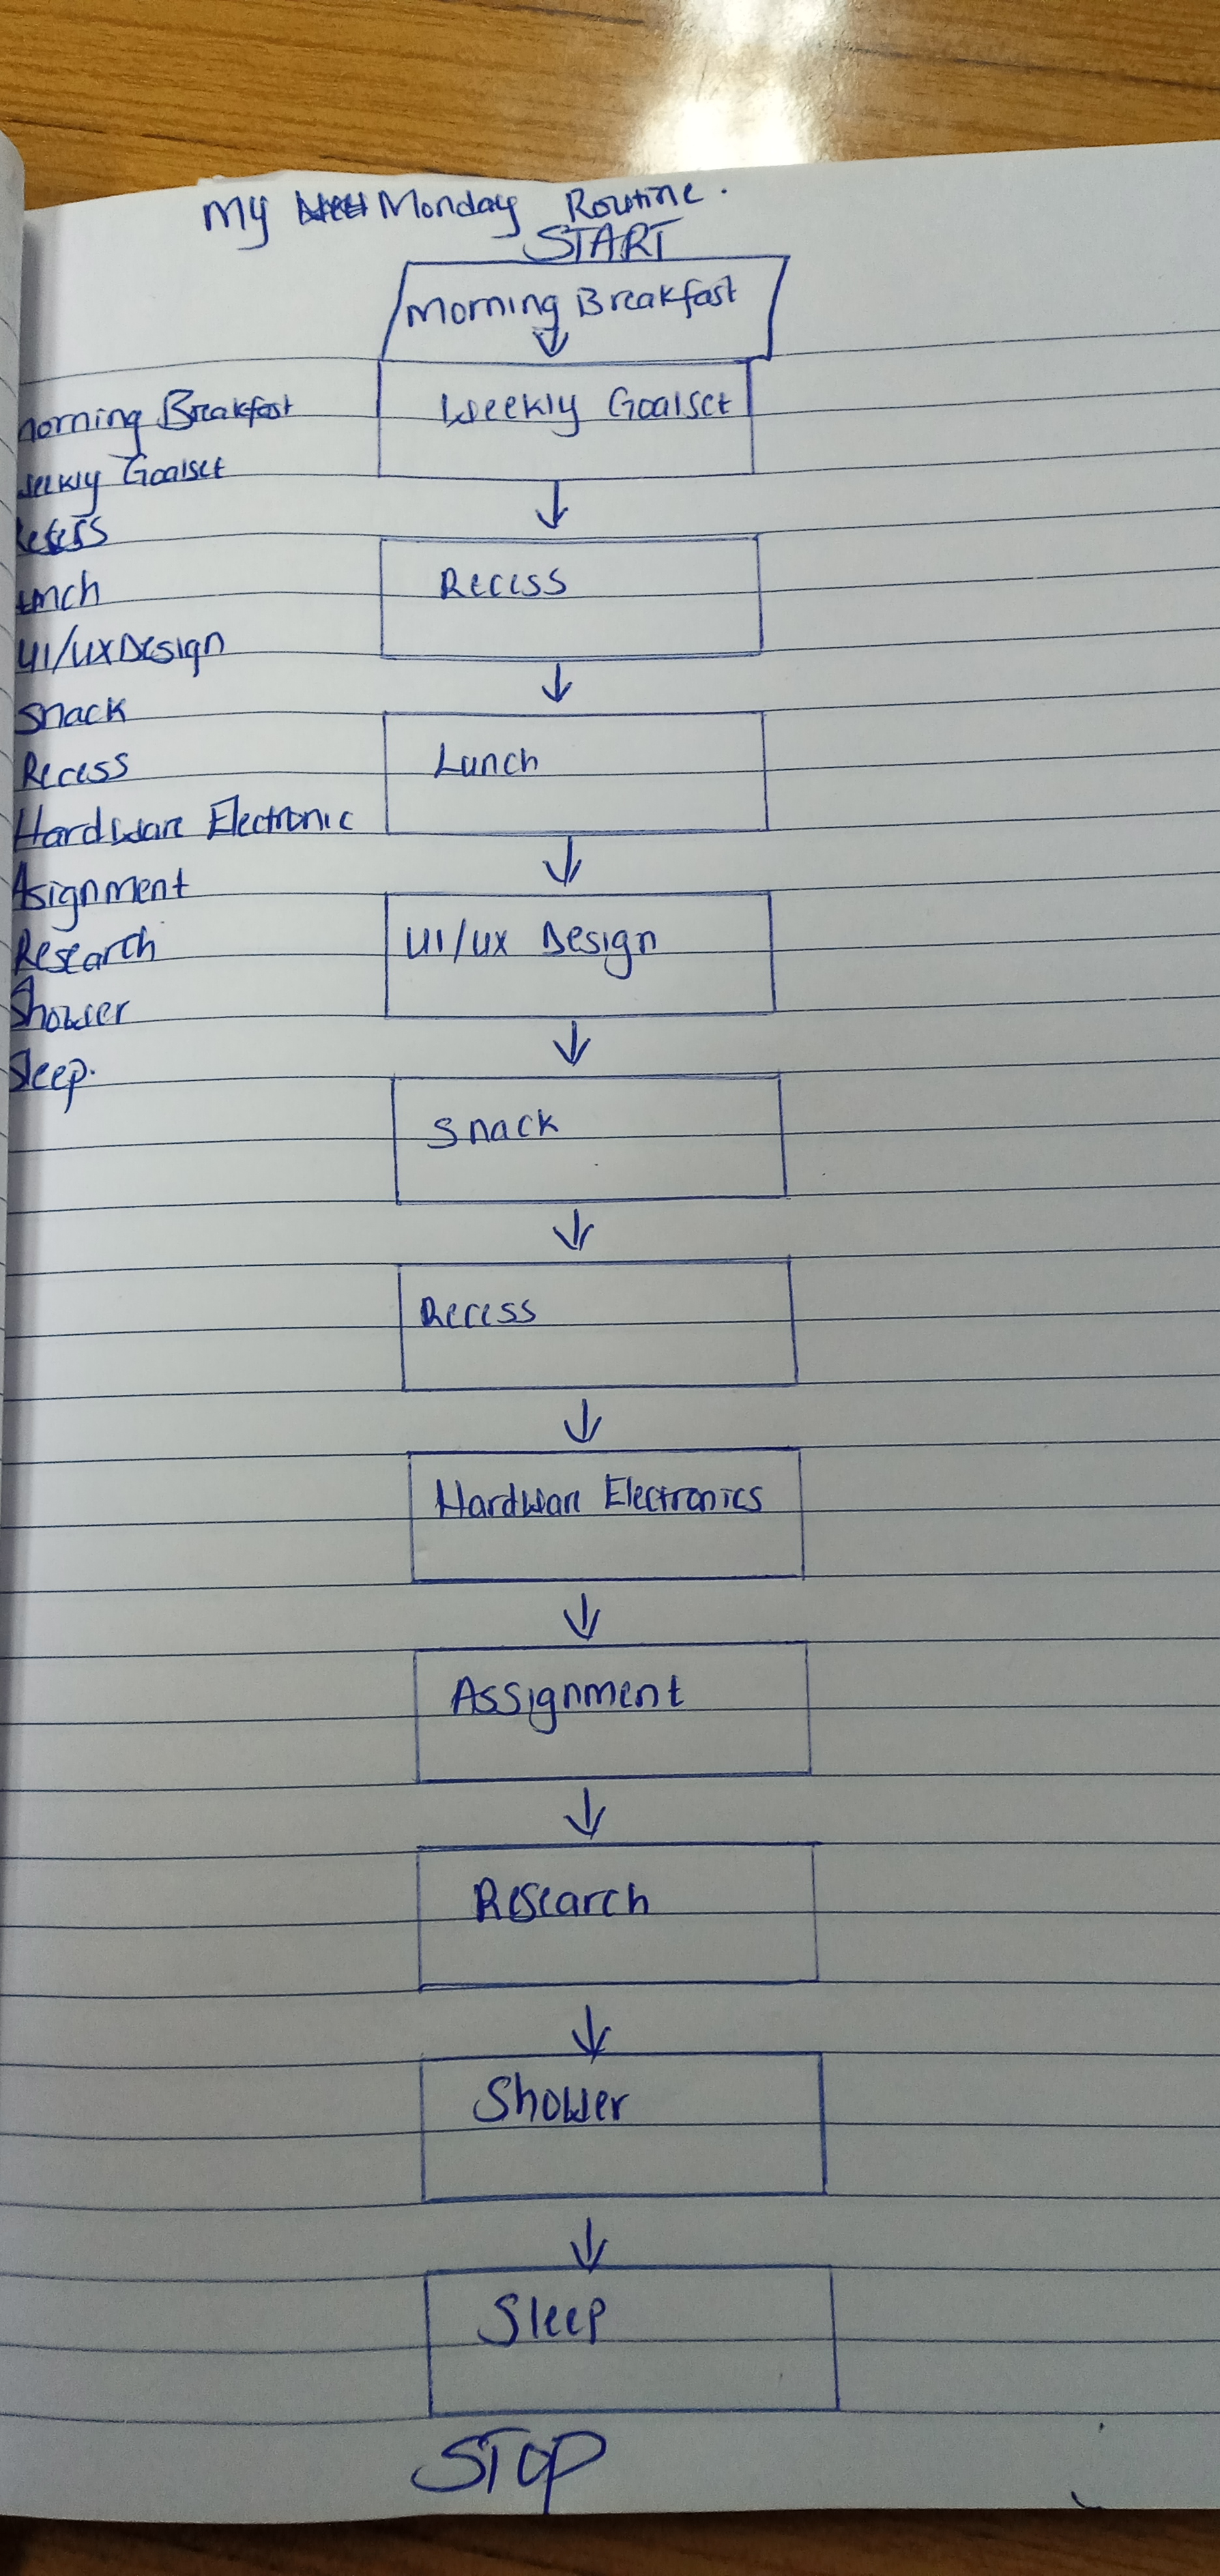 My Monday Routine.
START
Morning Breakfast
Weekly Goalset
Recess
Lunch
UI/UX Design
Snack
Recess
Hardware Electronics
Assignment
Research
Shower
Sleep
STOP
Morning Breakfast
Weekly Goalset
Recess
Lunch
UI/UX Design
Snack
Recess
Hardware Electronic
Asignment
Research
Shower
Sleep.